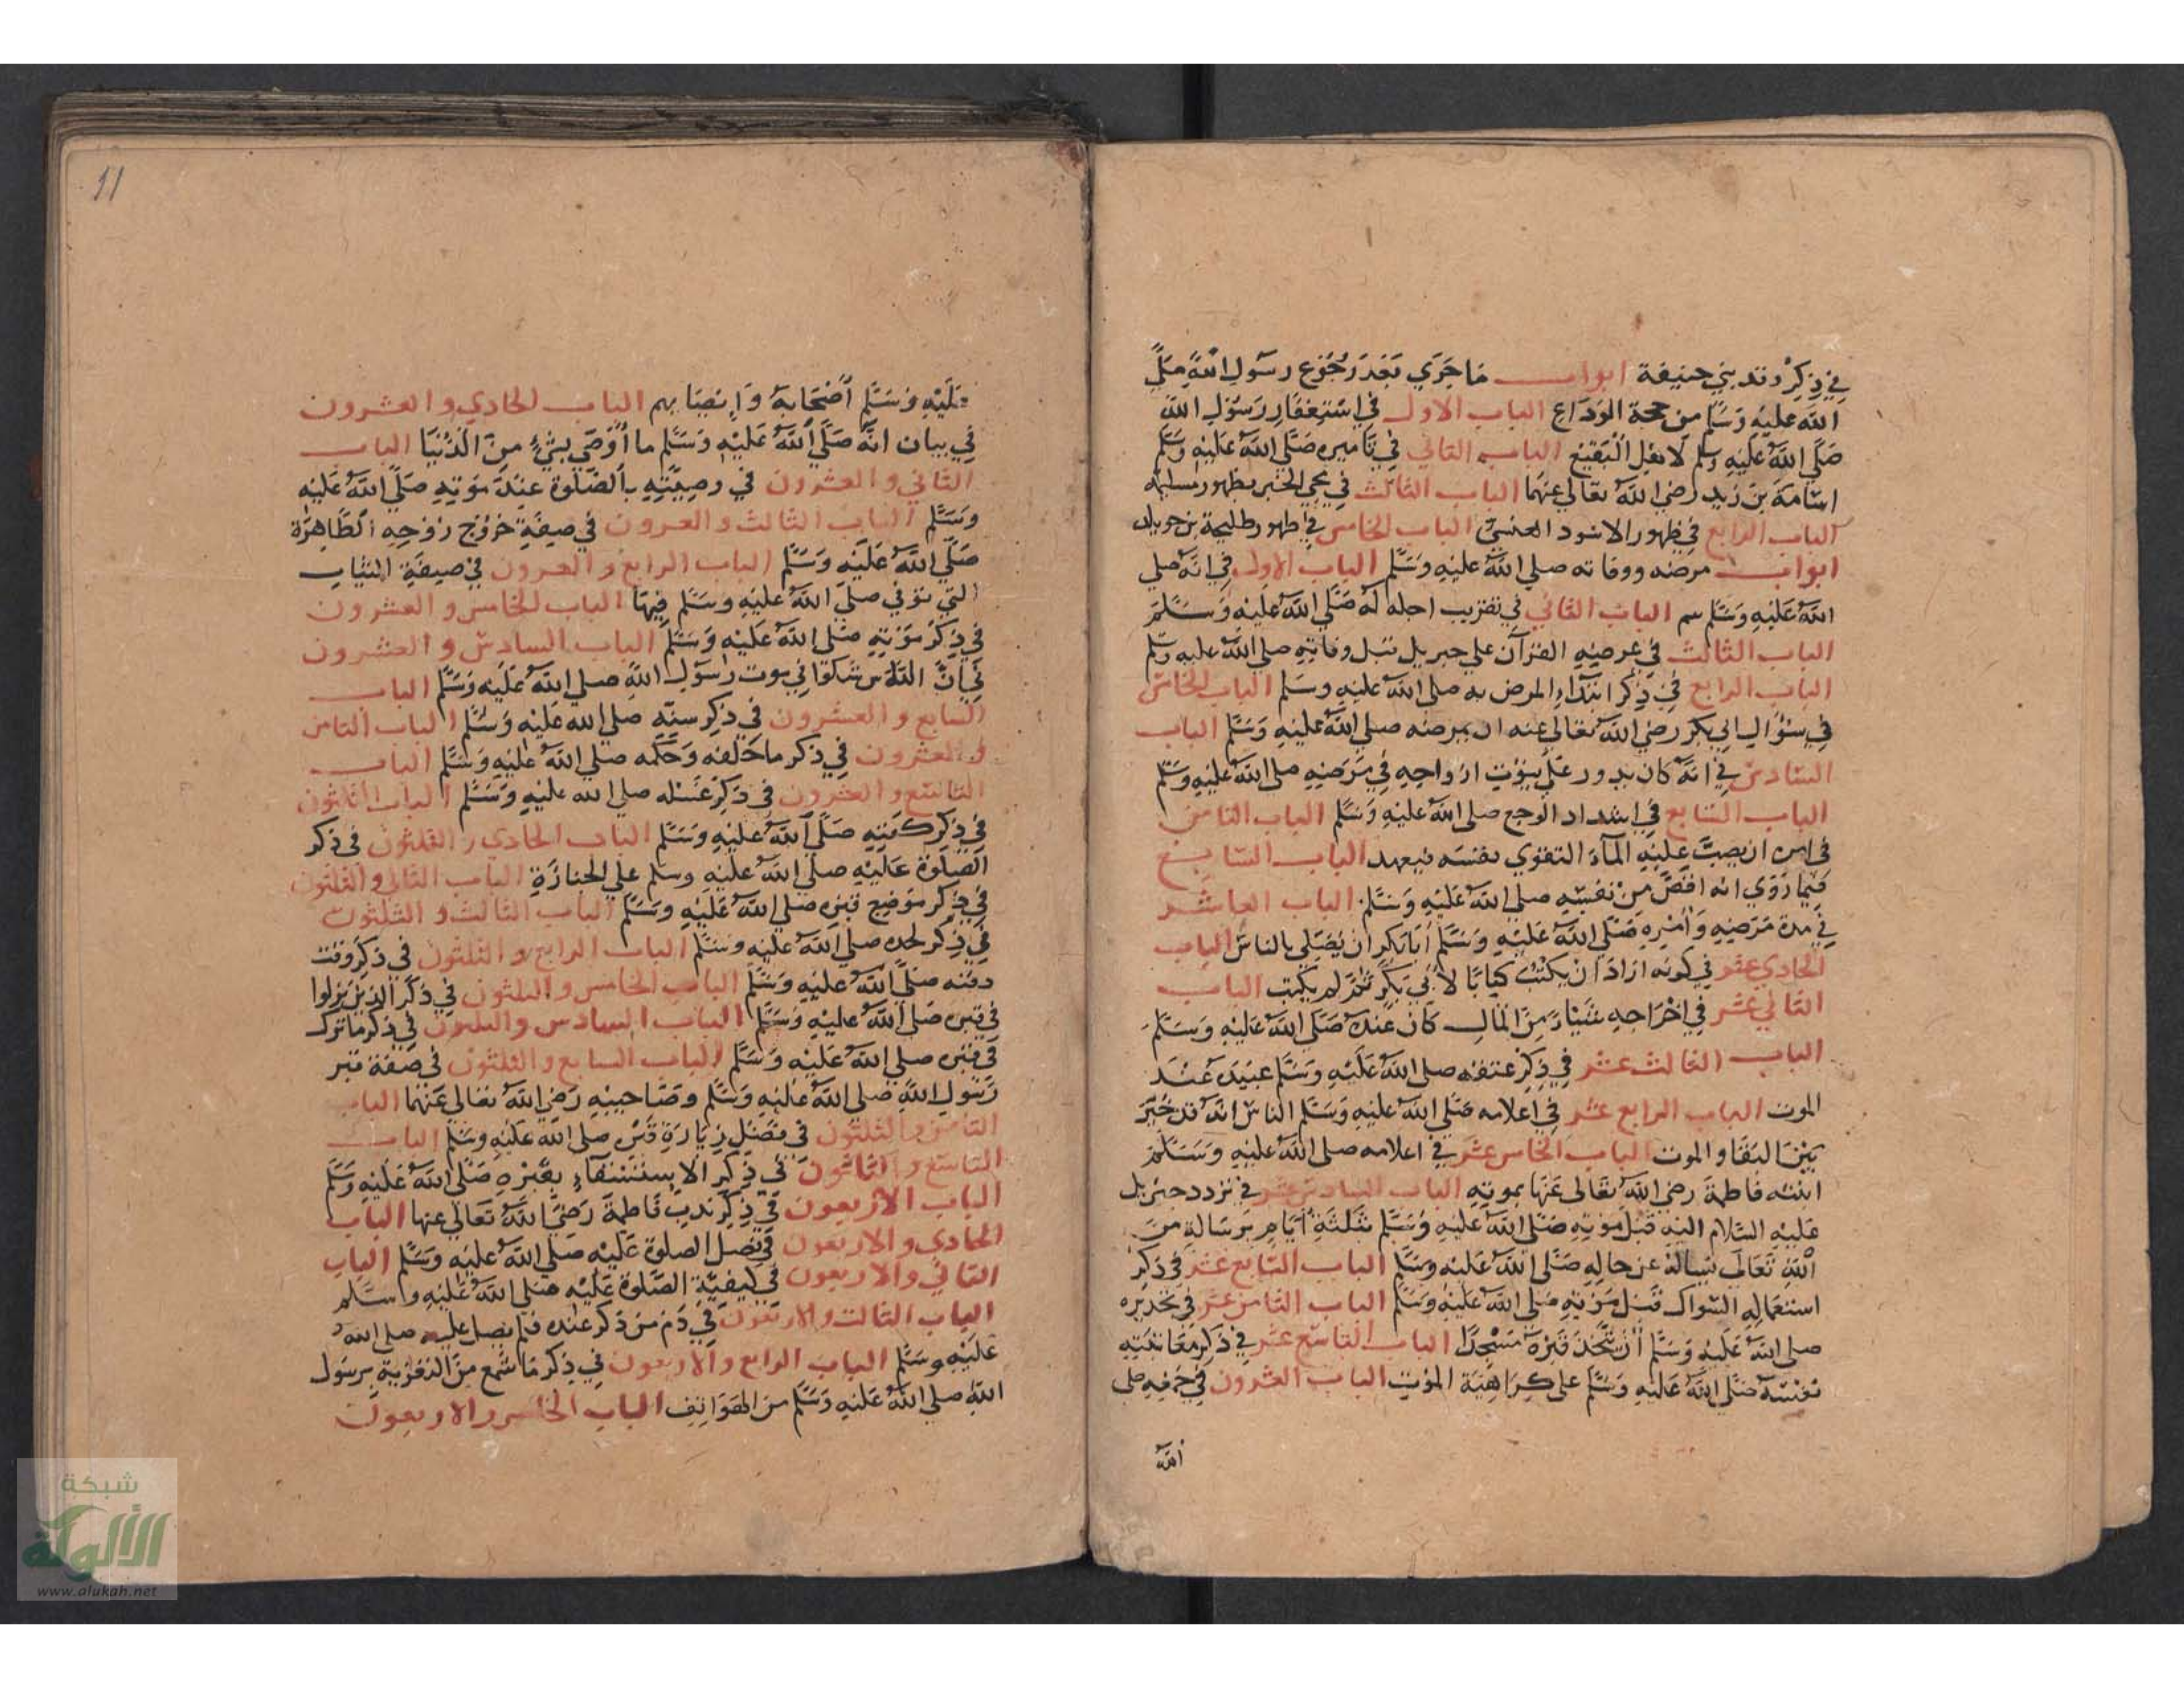 في ذكر وفد بني حنيفة ابواب ما جري بعد رجوع رسول الله صلي
الله عليه وسلم من حجة الوداع الباب الاول في استغفار رسول الله
صلي الله عليه وسلم لاهل البقيع الباب الثاني في تاميره صلي الله عليه وسلم
اسامة بن زيد رضي الله تعالي عنهما الباب الثالث في مجي الخبر بظهور مسيلمة
الباب الرابع في ظهور الاسود العنسي الباب الخامس في ظهور طليحة بن خويلد
ابواب مرضه ووفاته صلي الله عليه وسلم الباب الاول في انه صلي
الله عليه وسلم سم الباب الثاني في تقريب اجله له صلي الله عليه وسلم
الباب الثالث في عرضه القرآن علي جبريل قبل وفاته صلي الله عليه وسلم
الباب الرابع في ذكر ابتداء المرض به صلي الله عليه وسلم الباب الخامس
في سؤال ابي بكر رضي الله تعالي عنه ان يمرضه صلي الله عليه وسلم الباب
السادس في انه كان يدور علي بيوت ازواجه في مرضه صلي الله عليه وسلم
الباب السابع في اشتداد الوجع صلي الله عليه وسلم الباب الثامن
في امره ان يصب عليه الماء لتقوي نفسه فيعهد الباب التاسع
فيما روي انه اقص من نفسه صلي الله عليه وسلم الباب العاشر
في مدة مرضه وامره صلي الله عليه وسلم ابا بكر ان يصلي بالناس الباب
الحادي عشر في كونه اراد ان يكتب كتابا لابي بكر ثم لم يكتب الباب
الثاني عشر في اخراجه شيئا من المال كان عنده صلي الله عليه وسلم
الباب الثالث عشر في ذكر عتقه صلي الله عليه وسلم عبيده عند
الموت الباب الرابع عشر في اعلامه صلي الله عليه وسلم الناس انه قد خير
بين البقا والموت الباب الخامس عشر في اعلامه صلي الله عليه وسلم
ابنته فاطمة رضي الله تعالي عنها بموته الباب السادس عشر في تردد جبريل
عليه السلام اليه قبل موته صلي الله عليه وسلم بثلثة ايام برسالة من
الله تعالي يساله عن حاله صلي الله عليه وسلم الباب السابع عشر في ذكر
استعماله السواك قبل موته صلي الله عليه وسلم الباب الثامن عشر في تحذيره
صلي الله عليه وسلم ان يتخذ قبره مسجدا الباب التاسع عشر في ذكر معاتبته
نفسه صلي الله عليه وسلم علي كراهية الموت الباب العشرون في جمعه صلي
الله
11
عليه وسلم اصحابه وايصا بهم الباب الحادي والعشرون
في بيان انه صلي الله عليه وسلم ما اوصي بشيء من الدنيا الباب
الثاني والعشرون في وصيته بالصلوة عند موته صلي الله عليه
وسلم الباب الثالث والعرون في صيفة خروج روحه الطاهرة
صلي الله عليه وسلم الباب الرابع والعرون في صيفة الثياب
التي توفي صلي الله عليه وسلم فيها الباب الخامس والعشرون
في ذكر موته صلي الله عليه وسلم الباب السادس والعشرون
في ان الناس شكوا في موت رسول الله صلي الله عليه وسلم الباب
السابع والعشرون في ذكر سنه صلي الله عليه وسلم الباب الثامن
والعشرون في ذكر ما خلفه وحكمه صلي الله عليه وسلم الباب
التاسع والعشرون في ذكر غسله صلي الله عليه وسلم الباب الثلثون
في ذكر كفنه صلي الله عليه وسلم الباب الحادي والثلثون في ذكر
الصلوة عليه صلي الله عليه وسلم علي الجنازة الباب الثاني والثلثون
في ذكر موضع قبره صلي الله عليه وسلم الباب الثالث والثلثون
في ذكر لحده صلي الله عليه وسلم الباب الرابع والثلثون في ذكر وقت
دفنه صلي الله عليه وسلم الباب الخامس والثلثون في ذكر الذين نزلوا
في قبره صلي الله عليه وسلم الباب السادس والثلثون في ذكر ما ترك
في قبره صلي الله عليه وسلم الباب السابع والثلثون في صفة قبر
رسول الله صلي الله عليه وسلم وصاحبيه رضي الله تعالي عنهما الباب
الثامن والثلثون في فضل زيارة قبره صلي الله عليه وسلم الباب
التاسع والثلثون في ذكر الاستسقاء بقبره صلي الله عليه وسلم
الباب الاربعون في ذكر ندب فاطمة رضي الله تعالي عنها الباب
الحادي والاربعون في فضل الصلوة عليه صلي الله عليه وسلم الباب
الثاني والاربعون في كيفية الصلوة عليه صلي الله عليه وسلم
الباب الثالث والاربعون في ذم من ذكر عنده فلم يصل عليه صلي الله
عليه وسلم الباب الرابع والاربعون في ذكر ما سمع من التعزية برسول
الله صلي الله عليه وسلم من الهواتف الباب الخامس والاربعون
شبكة
الألوكة
www.alukah.net